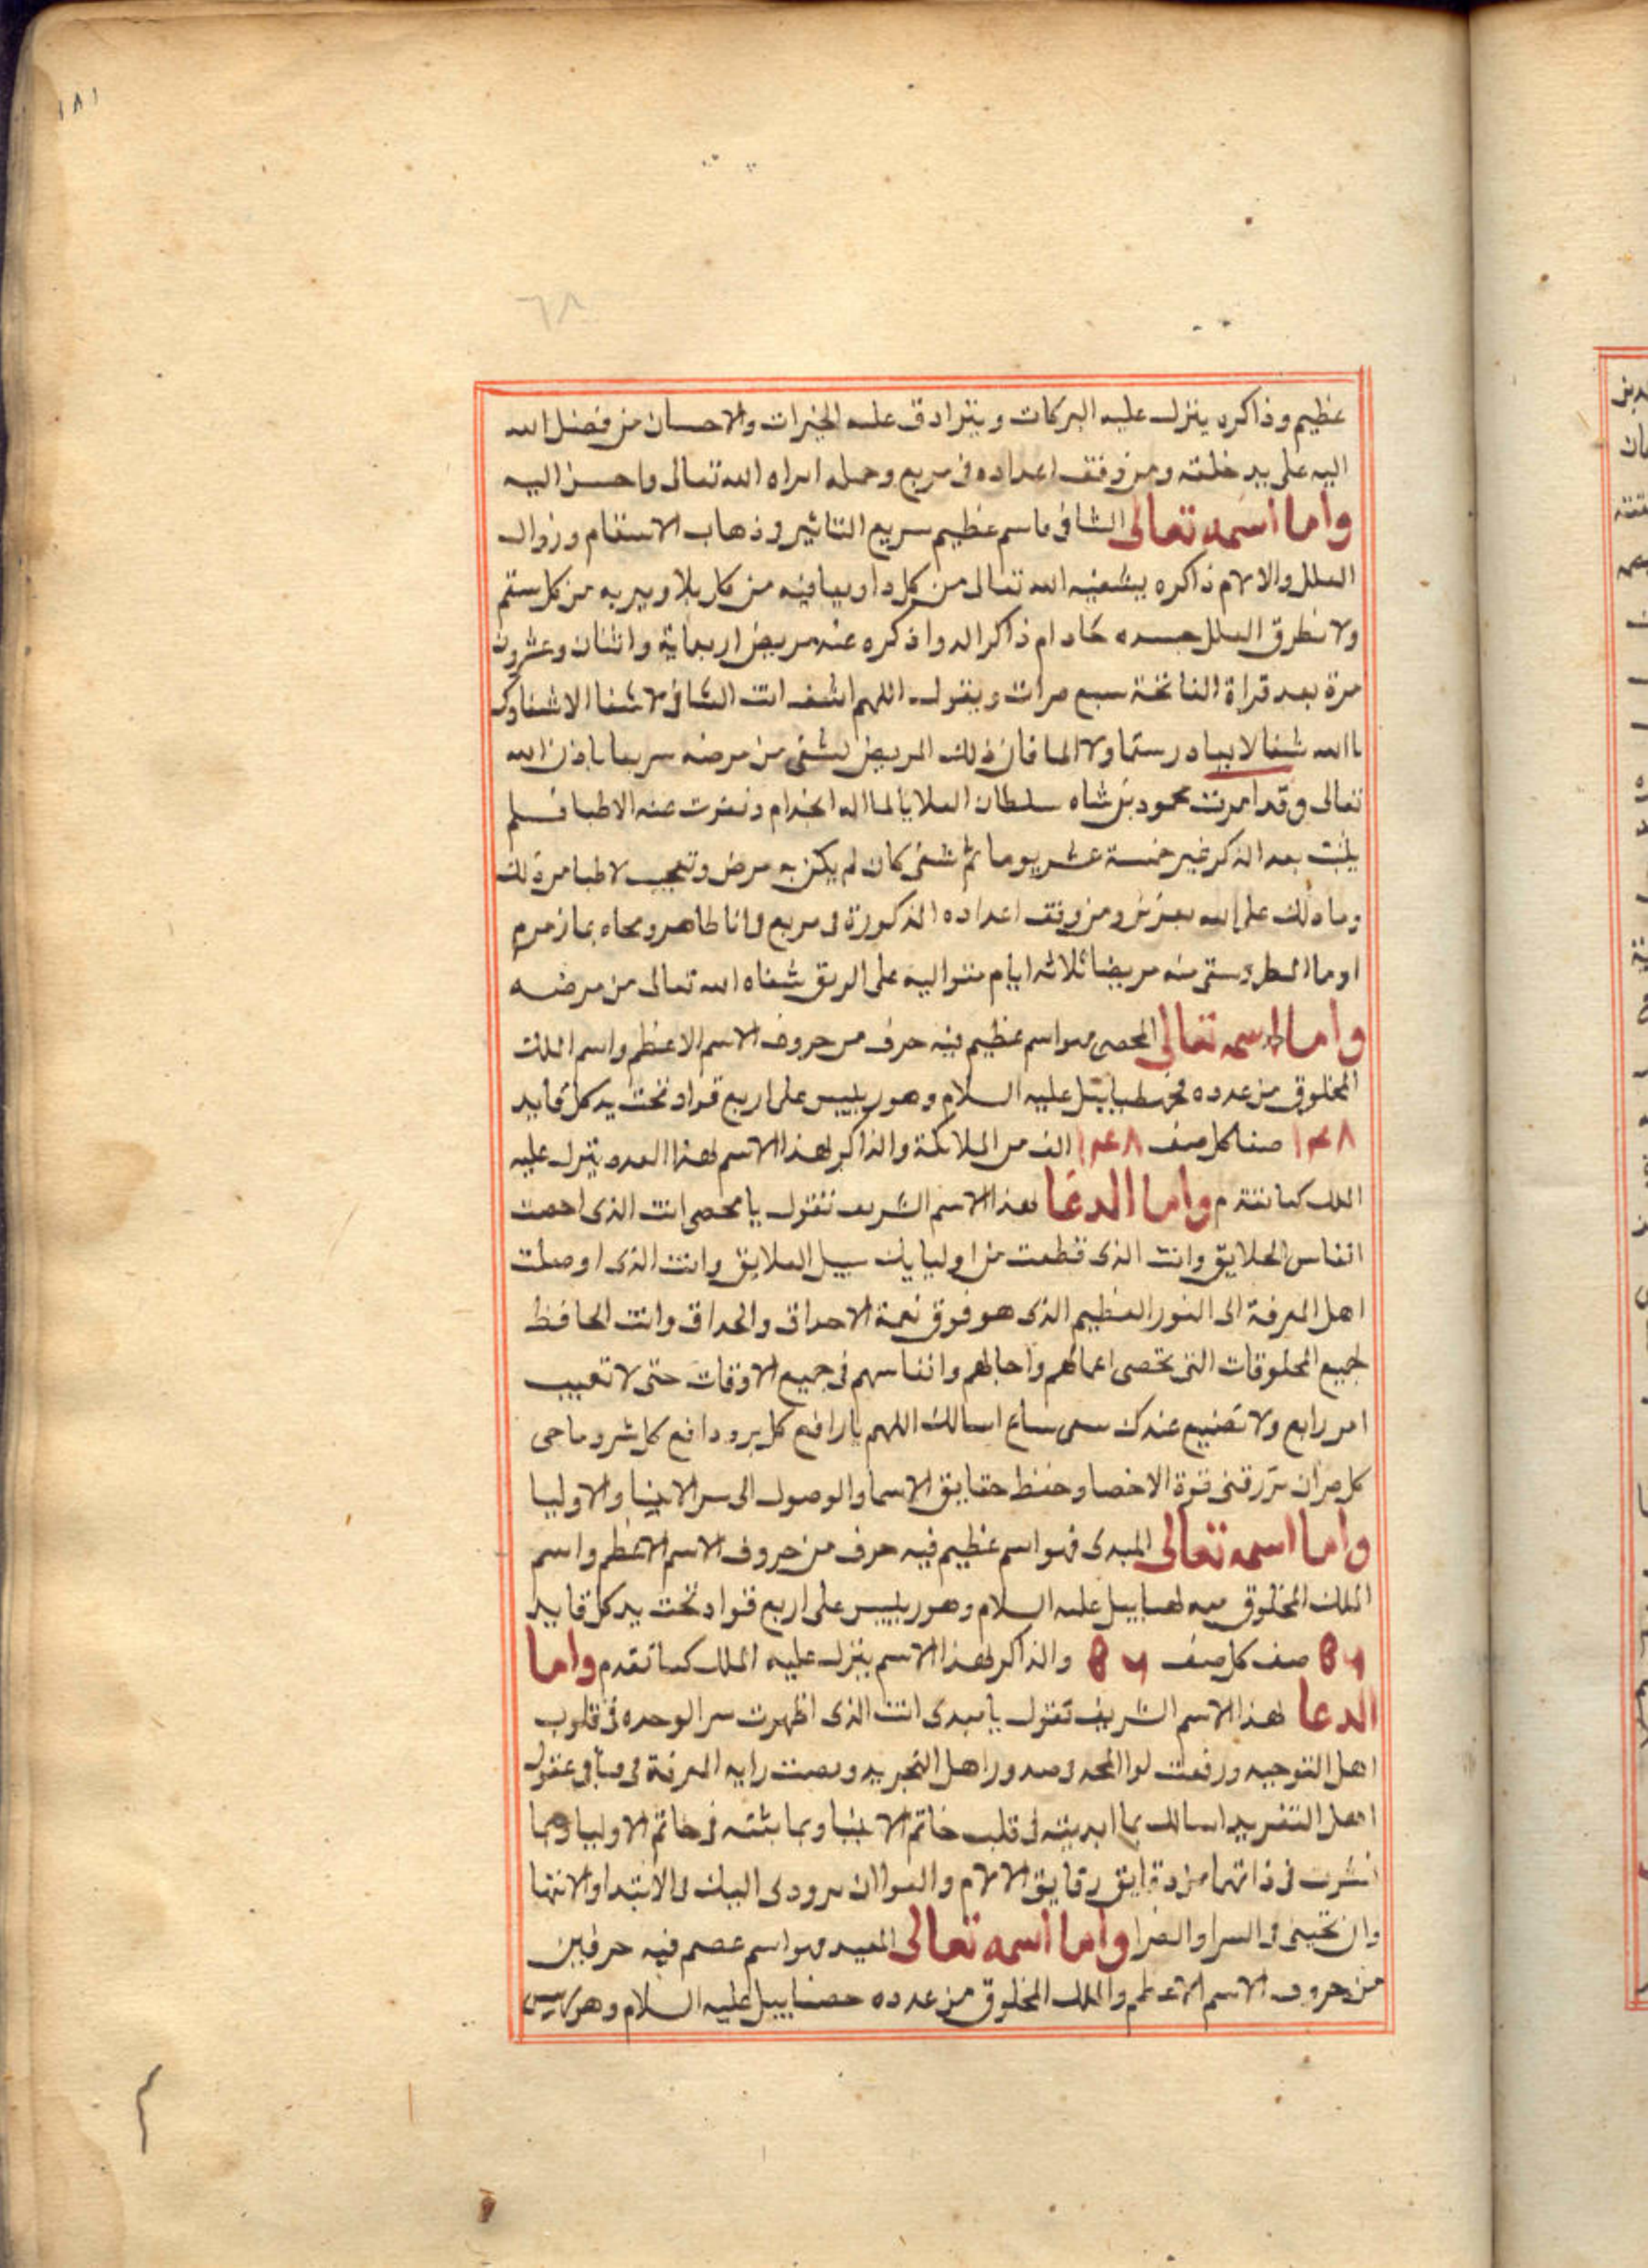 ١٨١
٦٨
عظيم وذاكره ينزل عليه البركات ويترادف عليه الخيرات والاحسان من فضل الله
اليه على يد خلقه ومن وفق اعداده فى مربع وحمله ابراه الله تعالى واحسن اليه
واما اسمه تعالى الشافى فاسم عظيم سريع التاثير وذهاب الاسقام وزوال
العلل والالام ذاكره يشفيه الله تعالى من كل دا ويعافيه من كل بلا ويبريه من كل سقم
ولا تطرق العلل جسده مادام ذاكرا له واذكره عند مريض اربماية واثنان وعشرون
مرة بعد قراة الفاتحة سبع مرات ويقول اللهم اشف انت الشافى لا شفا الا شفاوك
ياالله شفا لا يغادر سقما ولا الما فان ذلك المريض يشفى من مرضه سريعا باذن الله
تعالى وقد امرت محمود بن شاه سلطان العلايا لما اله الجذام ونفرت عنه الاطبا فلم
يلبث بعد الذكر غير خمسة عشر يوما ثم شفى كان لم يكن به مرض وتعجب الاطبا من ذلك
وما ذلك على الله بعزيز ومن وفق اعداده المذكورة فى مربع فى انا طاهر ومحاه بما زمزم
او ما المطر وسقى منه مريضا ثلاثه ايام متواليه على الريق شفاه الله تعالى من مرضه
واما اسمه تعالى المحصى فهو اسم عظيم فيه حرف من حروف الاسم الاعظم واسم الملك
المخلوق من عدده طياييل عليه السلام وهو رييس على اربع قواد تحت يد كل قايد
١٤٨ صفا كل صف ١٤٨ الف من الملايكة والذاكر لهذا الاسم لهذا العدد ينزل عليه
الملك كما تقدم واما الدعا لهذا الاسم الشريف تقول يا محصى انت الذى احصيت
انفاس الخلايق وانت الذى قطعت من اوليايك سبيل العلايق وانت الذى اوصلت
اهل المعرفة الى النور العظيم الذى هو فوق نعمة الاحداق والحداق وانت الحافظ
لجميع المخلوقات التى تحصى اعمالهم واجالهم وانفاسهم فى جميع الاوقات حتى لا تغيب
امر رابع ولا تضيع عندك سعى ساع اسالك اللهم يا رافع كل بر ودافع كل شر وماحى
كل ضر ان ترزقنى قوة الاحصا وحفظ حقايق الاسما والوصول الى سر الانبيا والاوليا
واما اسمه تعالى المبدى فهو اسم عظيم فيه حرف من حروف الاسم الاعظم واسم
الملك المخلوق منه لهبابيل عليه السلام وهو رييس على اربع قواد تحت يد كل قايد
٥٦ صف كل صف ٥٦ والذاكر لهذا الاسم ينزل عليه الملك كما تقدم واما
الدعا لهذا الاسم الشريف تقول يا مبدى انت الذى اظهرت سر الوحده فى قلوب
اهل التوحيد ورفعت لوا المجد فى صدور اهل التجريد ونصبت رايه المعرفة فى عقول
اهل التفريد اسالك بما ابديته فى قلب خاتم الانبيا وبما بثثته فى خاتم الاوليا وبما
نشرت فى ذاتهما من دقايق رقايق الالام والنوا ان برودى اليك فى الابتدا والانتها
وان تحينى فى السرا والضرا واما اسمه تعالى المعيد فهو اسم عصم فيه حرفين
من حروف الاسم الاعظم والملك المخلوق من عدده حصناييل عليه السلام وهو رييس